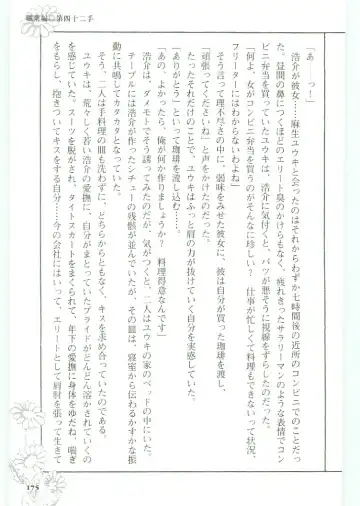 職業編◎第四十二手
「あ――っ！」
浩介が彼女……麻生ユウキと会ったのはそれからわずか七時間後の近所のコンビニでのことだっ
た。昼間の鼻につくほどのエリート臭のかけらもなく、疲れきったサラリーマンのような表情でコン
ビニ弁当を買っていたユウキは、浩介に気付くと、バツが悪そうに視線をずらしたのだった。
「何よ、女がコンビニ弁当を買うのがそんなに珍しい？　仕事が忙しくて料理もできないって状況、
フリーターにはわからないわよね」
そう言って理不尽さの中に、弱味をみせた彼女に、彼は自分が買った珈琲を渡し、
「頑張ってくださいね」と声をかけたのだった。
たったそれだけのことで、ユウキはふっと肩の力が抜けていく自分を実感していた。
「ありがとう」といって珈琲を流し込む……。
「あの、よかったら、俺が何か作りましょうか？　料理得意なんです」
浩介は、ダメモトでそう誘ってみたのだが、気がつくと、二人はユウキの家のベッドの中にいた。
テーブルには浩介が作ったシチューの残骸が並んでいたが、その皿は、寝室から伝わるかすかな振
動に共鳴してカタカタとなっていた。
そう、二人は手料理の皿も洗わずに、どちらからともなく、キスを求め合っていたのである。
ユウキは、荒々しく若い浩介の愛撫に、自分がまとっていたプライドがどんどん溶かされていくの
を感じていた。スーツを脱がされ、タイトスカートをまくられて、年下の愛撫に身体をゆだね、喘ぎ
をもらし、抱きついてキスをする自分……今の会社にはいって、エリートとして肩肘を張って生きて
175